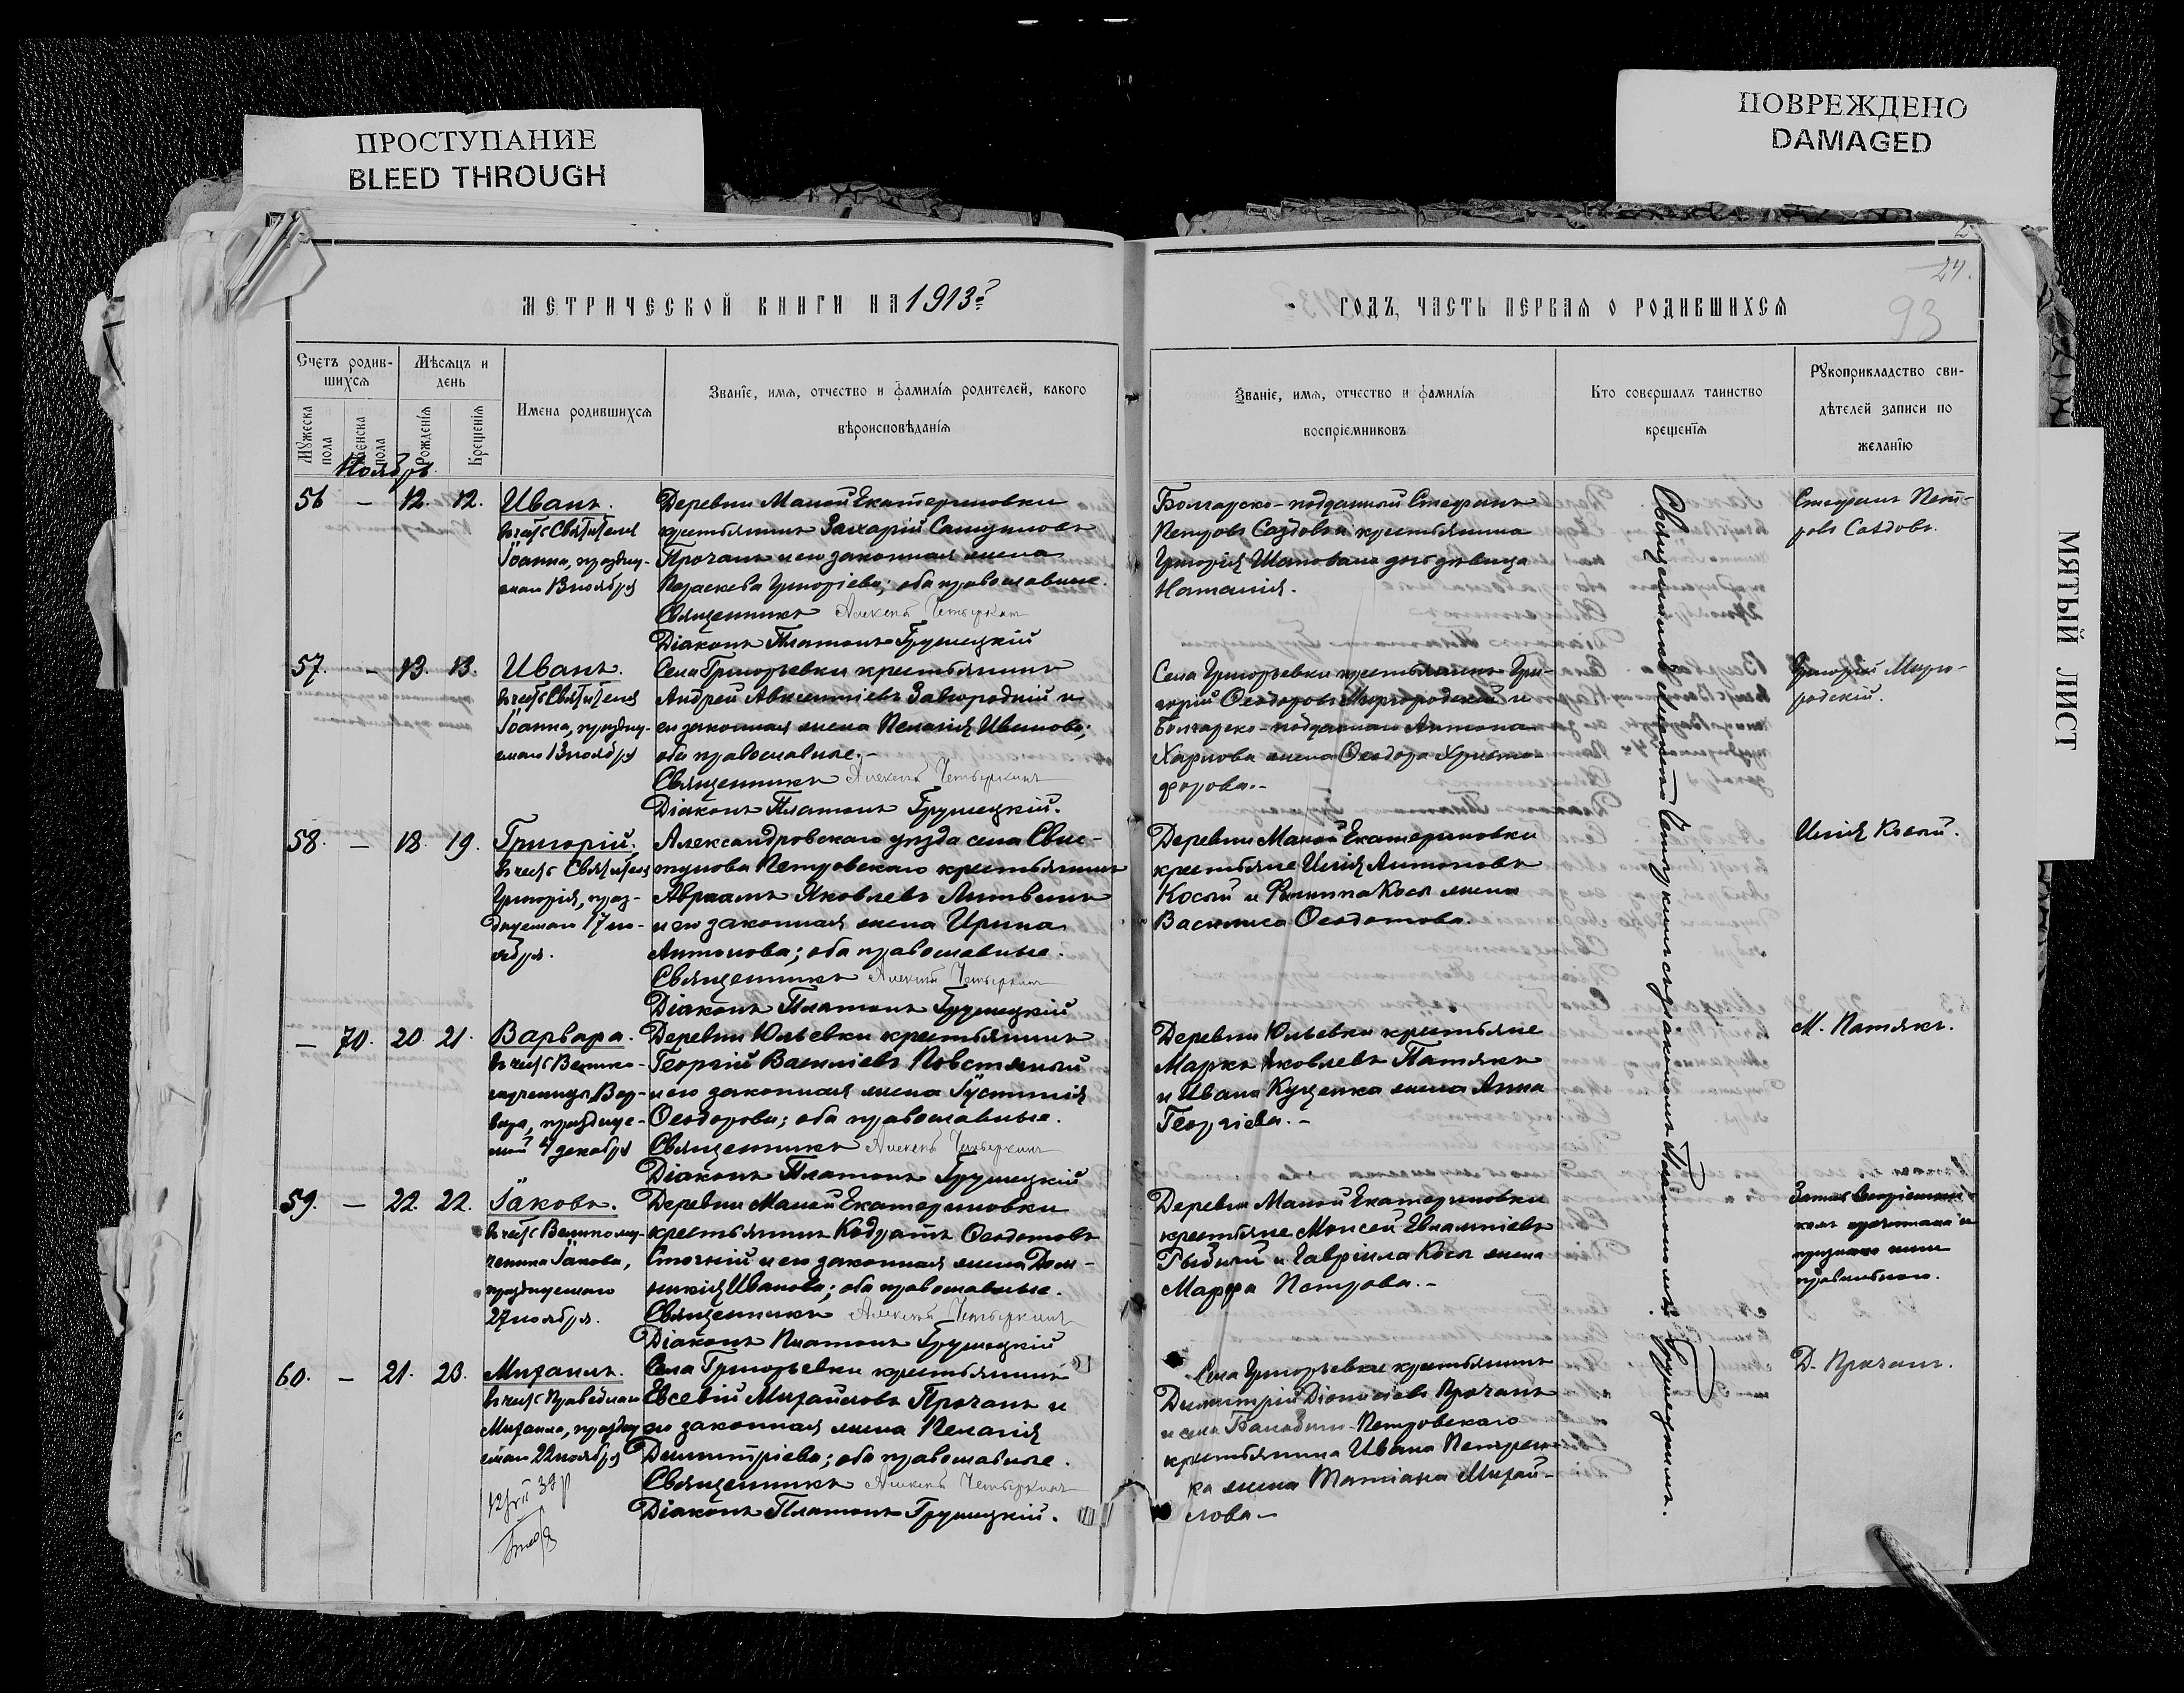 ПРОСТУПАНИЕ
BLEED THROUGH
ПОВРЕЖДЕНО
DAMAGED
МЯТЫЙ ЛИСТ
24.
93
МЕТРИЧЕСКОЙ КНИГИ НА 1913 г.
ГОДЪ, ЧАСТЬ ПЕРВАЯ О РОДИВШИХСЯ
Счетъ родив-
шихся
Мужеска пола
Женска пола
Мѣсяцъ и
день
Рожденія
Крещенія
Имена родившихся
Званіе, имя, отчество и фамилія родителей, какого
вѣроисповѣданія
Званіе, имя, отчество и фамилія
воспріемниковъ
Кто совершалъ таинство
крещенія
Рукоприкладство сви-
дѣтелей записи по
желанію
Ноябрь.
56 – 12. 12. Иванъ.
въ честь Святителя
Іоанна, праздну-
емаго 13 ноября
Деревни Малой Екатериновки
крестьянинъ Захарій
Прочанъ и его законная жена
Параскева Григоріева; оба православные.
Священникъ Алексѣй Четыркинъ
Діаконъ Платонъ Грушецкій
Болгарско-подданный Стефанъ
Петровъ Саздовъ и крестьянина
Григорія Шаповала дочь дѣвица
Наталія.
Стефанъ Пет-
ровъ Саздовъ.
57. – 13. 13. Иванъ.
въ честь Святителя
Іоанна, праздну-
емаго 13 ноября
Села Григорьевки крестьянинъ
Андрей Авксентіевъ Завгородній и
его законная жена Пелагія Иванова;
оба православные.–
Священникъ Алексѣй Четыркинъ
Діаконъ Платонъ Грушецкій.
Села Григорьевки крестьянинъ Гри-
горій Ѳеодоровъ Миргородскій и
Болгарско-подданнаго Антона
Харлова жена Ѳеодора Христо-
форова.–
Григорій Мирго-
родскій.
58. – 18. 19. Григорій.
въ честь Святителя
Григорія, праз-
днуемаго 17 но-
ября.
Александровскаго уѣзда села Свис-
тунова Петровскаго крестьянинъ
Авраамъ Яковлевъ Литвинъ
и его законная жена Ирина
Антонова; оба православные.
Священникъ Алексѣй Четыркинъ
Діаконъ Платонъ Грушецкій
Деревни Малой Екатериновки
крестьяне Илія Антоновъ
Косый и Филиппа Кося жена
Василиса Ѳеодотова.
Илія Косый.
– 70. 20. 21. Варвара.
въ честь Велико-
мученицы Вар-
вары, празднуе-
мой 4 декабря
Деревни Юльевки крестьянинъ
Георгій Василіевъ Повстяный
и его законная жена Іустинія
Ѳеодорова; оба православные.
Священникъ Алексѣй Четыркинъ
Діаконъ Платонъ Грушецкій
Деревни Юльевки крестьяне
Марко Яковлевъ Патякъ
и Ивана Куценка жена Анна
Георгіева.–
М. Патякъ.
59. – 22. 22. Іаковъ.
въ честь Великому-
ченика Іакова,
празднуемаго
27 ноября.
Деревни Малой Екатериновки
крестьянинъ Кодратъ Ѳеодотовъ
и его законная жена Дом-
никія Иванова; оба православные.
Священникъ Алексѣй Четыркинъ
Діаконъ Платонъ Грушецкій
Деревни Малой Екатериновки
крестьяне Моисей Евлампіевъ
Рыбный и Гавріила Кося жена
Марфа Петрова.–
Запись воспріемни-
комъ прочитана и
признана имъ
правильною.
60. – 21. 23. Михаилъ.
въ честь Праведнаго
Михаила, праздну
емаго 22 ноября
Села Григорьевки крестьянинъ
Евсевій Михайловъ Прочанъ и
его законная жена Пелагія
Димитріева; оба православные.
Священникъ Алексѣй Четыркинъ
Діаконъ Платонъ Грушецкій.
Села Григорьевки крестьянинъ
Димитрій Діонисіевъ Прочанъ
и села Балабина-Петровскаго
крестьянина Ивана Петрен-
ка жена Татіана Михай-
лова–
Д. Прочанъ.
Священникъ Алексѣй Четыркинъ съ діакономъ Платономъ Грушецкимъ.